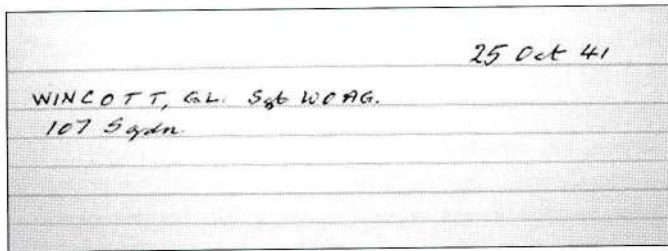 25 Oct 41
WINCOTT, G.L. Sgt WOAG.
107 Sqdn.